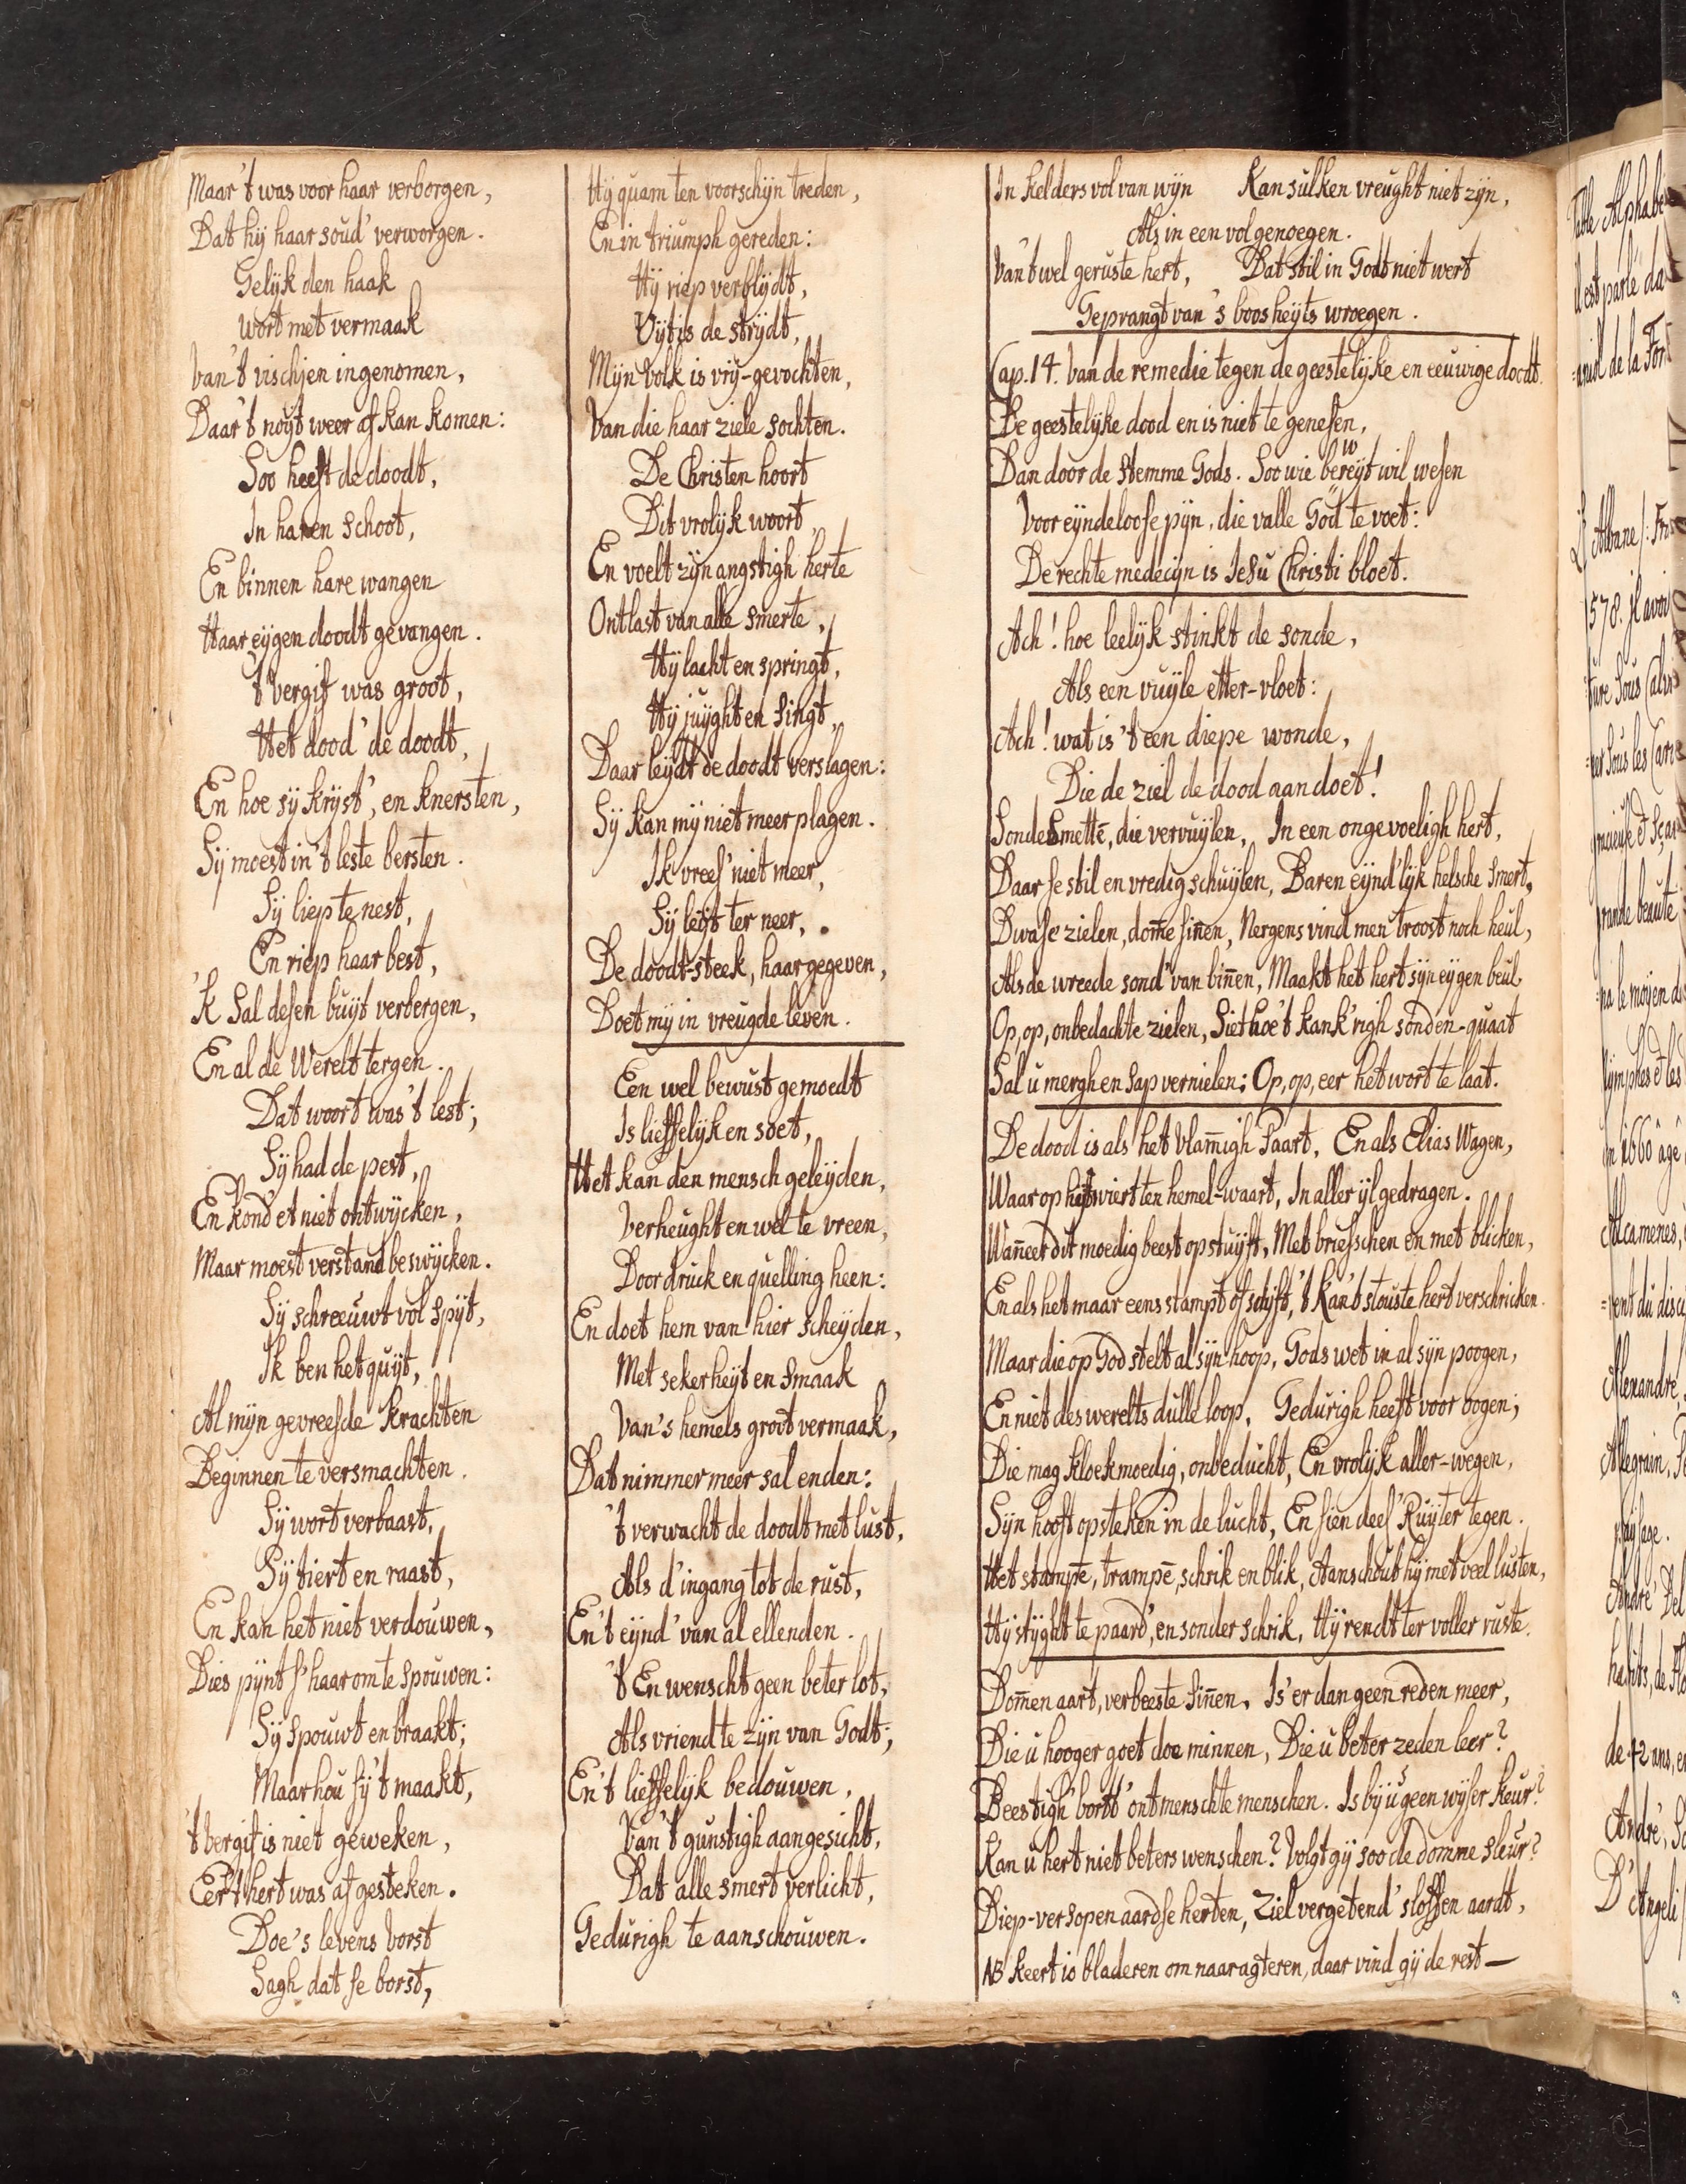 Maar 't was voor haar verborgen,
Dat hij haar soud' verworgen.
Gelijk den haak
Wort met vermaak
Van 't vischjen ingenomen,
Daar 't noyt weer af kan komen:
Soo heeft de doodt,
In haren schoot,
En binnen hare wangen
Haar eygen doodt gevangen.
't Vergif was groot,
Het dood' de doodt,
En hoe sy kryst', en knersten,
Sy moest in 't leste bersten.
Sy liep te nest,
En riep haar best,
'k Sal desen buyt verbergen,
En al de Werelt tergen.
Dat woort was 't lest;
Sy had de pest,
En kond' et niet ontwijcken,
Maar moest verstand beswijcken.
Sy schreeuwt vol spyt,
Ik ben het quyt,
Al mijn gevreesde krachten
Beginnen te versmachten.
Sy wort verbaast,
Sy tiert en raast,
En kan het niet verdouwen,
Dies pynt s' haar om te spouwen:
Sy spouwt en braakt;
Maar hou sy 't maakt,
't Vergif is niet geweken,
Eer 't hert was af gesteken.
Doe 's levens Vorst
Sagh dat se borst,
Hy quam ten voorschijn treden,
En in triumph gereden:
Hy riep verblydt,
Uyt is de strydt,
Mijn Volk is vry-gevochten,
Van die haar ziele sochten.
De Christen hoort
Dit vrolijk woort,
En voelt zijn angstigh herte
Ontlast van alle smerte,
Hy lacht en springt,
Hy juyght en singt,
Daar leydt de doodt verslagen:
Sy kan my niet meer plagen.
Ik vrees' niet meer,
Sy leyt ter neer,
De doodt-steek, haar gegeven,
Doet my in vreugde leven.
Een wel bewust gemoedt
Is lieffelijk en soet,
Het kan den mensch geleyden,
Verheught en wel te vreen,
Door druck en quelling heen:
En doet hem van hier scheyden,
Met sekerheyt en smaak
Van 's hemels groot vermaak,
Dat nimmermeer sal enden:
't verwacht de doodt met lust,
Als d' ingang tot de rust,
En 't eynd' van al ellenden.
't En wenscht geen beter lot,
Als vriend te zijn van Godt;
En 't lieffelijk bedouwen,
Van 't gunstigh aangesicht,
Dat alle smert verlicht,
Gedurigh te aanschouwen.
In kelders vol van wijn Kan sulken vreught niet zijn,
Als in een vol genoegen.
Van 't wel geruste hert, Dat stil in Godt niet wert
Geprangt van 's boosheyts wroegen.
Cap. 14. Van de remedie tegen de geestelijke en eeuwige doodt.
De geestelijke dood en is niet te genesen,
Dan door de stemme Gods. Soo wie bevreyt wil wesen
Voor eyndeloose pijn, die valle God te voet:
De rechte medecijn is Jesu Christi bloet.
Ach! hoe leelijk stinkt de sonde,
Als een vuyle etter-vloet:
Ach! wat is 't een diepe wonde,
Die de ziel de dood aan doet!
Sonde Smette, die vervuylen, In een ongevoeligh hert,
Daar se stil en vredig schuylen, Baren eynd'lijk helsche smert,
Dwase zielen, dom̄e sin̄en, Nergens vind men troost noch heul,
Als de wreede sond' van bin̄en, Maakt het hert sijn eygen beul.
Op, op, onbedachte zielen, Siet hoe 't kank'righ sonden-quaat
Sal u mergh en sap vernielen: Op, op, eer het wort te laat.
De dood is als het Vlam̄igh Paart, En als Elias Wagen,
Waar op hij wiert ten hemel-waart, In aller ijl gedragen.
Wan̄eer dit moedig beest op stuyft, Met briesschen en met blicken,
En als het maar eens stampt of schijft, 't Kan 't stouste hert verschricken.
Maar die op God stelt al sijn hoop, Gods wet in al sijn poogen,
En niet des werelts dulle loop, Gedurigh heeft voor oogen;
Die mag kloekmoedig, onbeducht, En vrolijk aller-wegen,
Sijn hooft opsteken in de lucht, En sien dees' Ruyter tegen.
Het stampē, trampē, schrik en blik, Aanschout hij met veel lusten,
Hy styght te paard', en sonder schrik, Hy rendt ter voller ruste.
Dom̄en aart, verbeeste sin̄en, Is 'er dan geen reden meer,
Die u hooger goet doe minnen, Die u beter zeden leer?
Beestigh' bortt' ontmenschte menschen. Is by u geen wyser keur?
Kan u hert niet beters wenschen? Volgt gy soo de domme sleur?
Diep-versopen aardse herten, Ziel vergetend' sloffen aardt,
NB keert 10 bladeren om naar agteren, daar vind gij de rest —
Table Alphabe
il est parlé da
L' Albane
1578. il avoi
grande beauté
lymphes et les
en 1660 âgé
Alcamenes,
Alexandre,
Allegrain,
paysage.
André Del
habits, de
de 42 ans, e
André,
D' Angeli